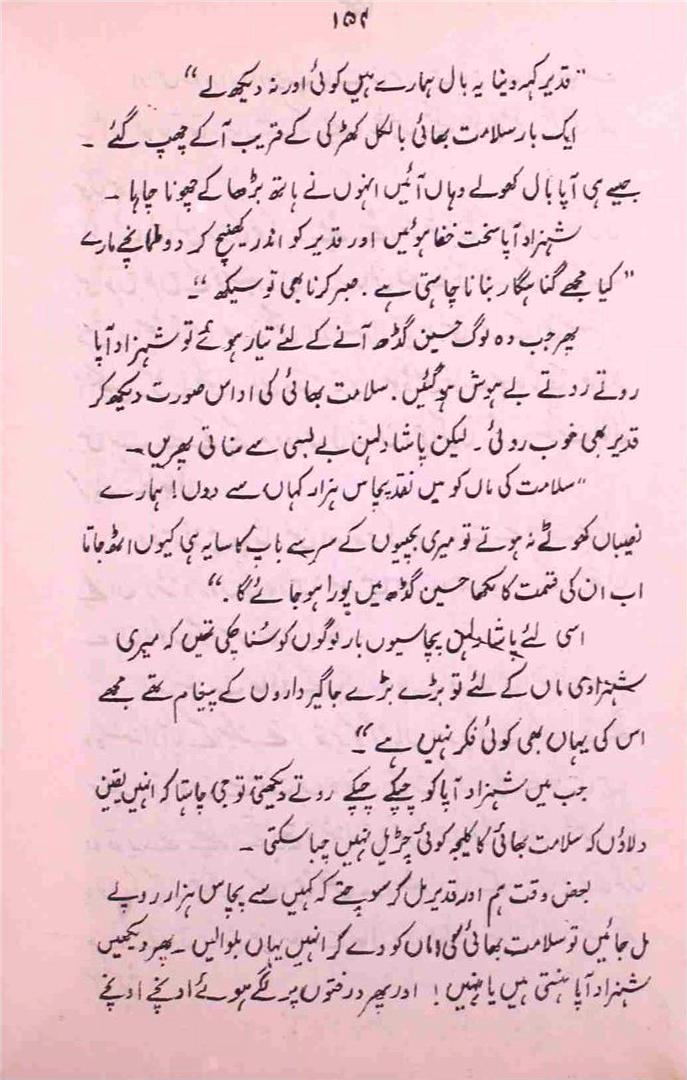 ۱۵۹
"قدیر کہہ دینا یہ بال ہمارے ہیں کوئی اور نہ دیکھ لے"
ایک بار سلامت بھائی بالکل کھڑکی کے قریب آ کے چھپ گئے ۔
جیسے ہی آپا بال کھولے وہاں آئیں انہوں نے ہاتھ بڑھا کے چھونا چاہا ۔
شہزاد آپا سخت خفا ہوئیں اور قدیر کو اندر کھینچ کر دو طمانچے مارے
"کیا مجھے گناہگار بنانا چاہتی ہے . صبر کرنا بھی تو سیکھ"۔
پھر جب وہ لوگ حسین گڈھ آنے کے لئے تیار ہوئے تو شہزاد آپا
روتے روتے بے ہوش ہو گئیں . سلامت بھائی کی اداس صورت دیکھ کر
قدیر بھی خوب روئی ۔ لیکن پاشا دلہن بے بسی سے سناتی پھریں ۔
"سلامت کی ماں کو میں نقد پچاس ہزار کہاں سے دوں ! ہمارے
نصیباں کھوٹے نہ ہوتے تو میری بچیوں کے سر سے باپ کا سایہ ہی کیوں اٹھ جاتا
اب ان کی قسمت کا لکھا حسین گڈھ میں پورا ہو جائے گا . "
اسی لئے پاشا دلہن پچاسیوں بار لوگوں کو سُنا چکی تھیں کہ میری
شہزادی ماں کے لئے تو بڑے بڑے جاگیرداروں کے پیغام تھے مجھے
اس کی یہاں بھی کوئی فکر نہیں ہے"۔
جب میں شہزاد آپا کو چپکے چپکے روتے دیکھتی تو جی چاہتا کہ انہیں یقین
دلاؤں کہ سلامت بھائی کا کلیجہ کوئی چڑیل نہیں چبا سکتی ۔
بعض وقت ہم اور قدیر مل کر سوچتے کہ کہیں سے پچاس ہزار روپے
مل جائیں تو سلامت بھائی کی اماں کو دے کر انہیں یہاں بلوالیں ۔ پھر دیکھیں
شہزاد آپا ہنستی ہیں یا نہیں ! اور پھر درختوں پر لگے ہوئے اونچے اونچے